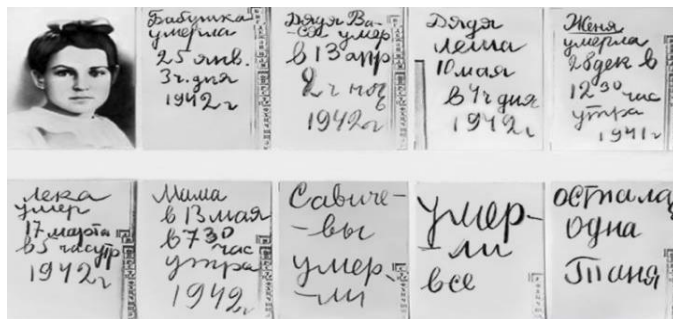 Бабушка
умерла
25 янв.
3 ч. дня
1942 г
Дядя Ва-
-ся умер
в 13 апр
2 ч ноч
1942 г
Дядя
Леша
10 мая
в 4 ч дня
1942 г
Женя
умерла
28 дек в
12 30 час
утра
1941 г
Лека
умер
17 марта
в 5 час утр
1942 г
Мама
в 13 мая
в 7 30
час
утра
1942 г
Савиче-
-вы
умер-
-ли
умер-
-ли
все
осталас
одна
Таня